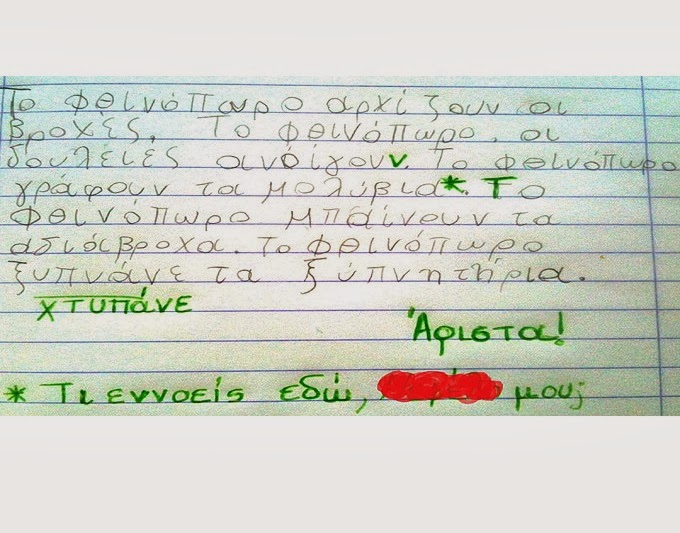 Το φθινόπωρο αρχίζουν οι
βροχές. Το φθινόπωρο, οι
δουλειές ανοίγουν. Το φθινόπωρο
γράφουν τα μολύβια*. Το
φθινόπωρο μπαίνουν τα
αδιάβροχα. το φθινόπωρο
ξυπνάνε τα ξύπνητήρια.
χτυπάνε
Άριστα!
* Τι εννοείς εδώ, μου;